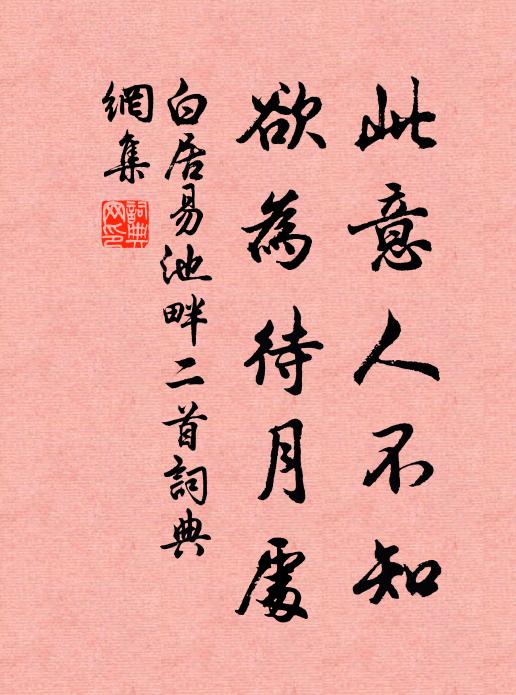 此意人不知
欲為待月處
白居易池畔二首詞典
網集
詞典
网印